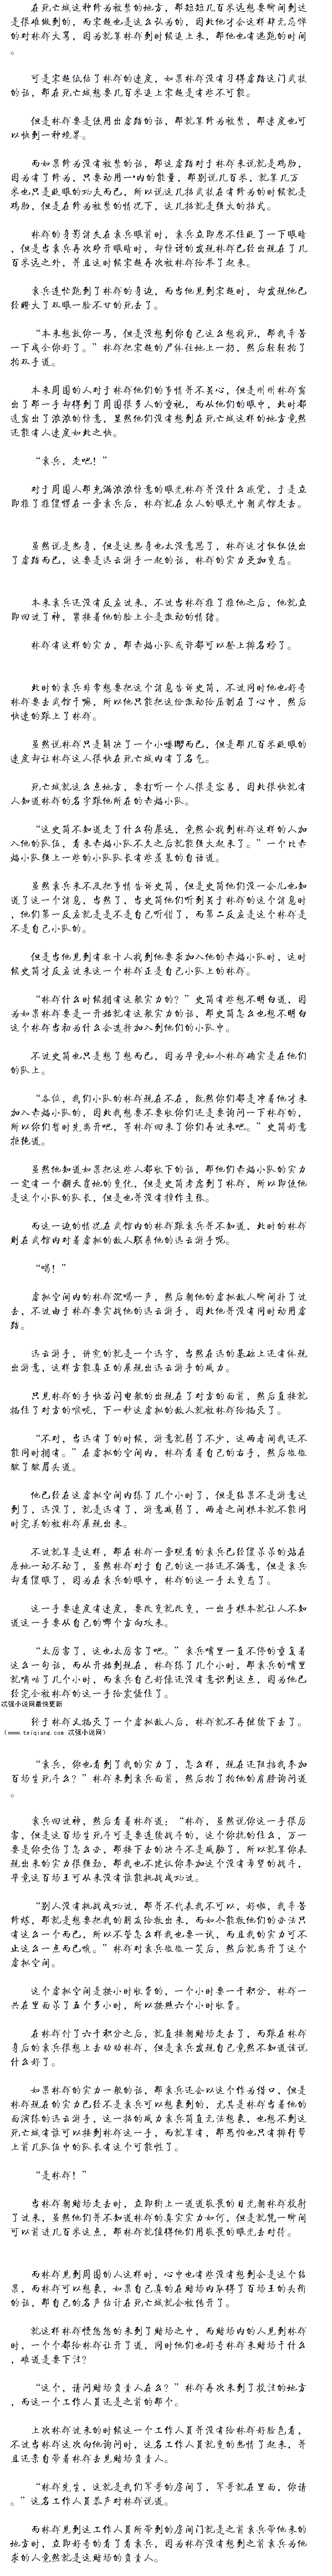 在死亡城这种修为被禁的地方，那短短几百米远想要瞬间到达
是很难做到的，而宋超也是这么认为的，因此他才会这样肆无忌惮
的对林群大骂，因为就算林群到时候追上来，那他也有逃跑的时间
。
可是宋超低估了林群的速度，如果林群没有习得虚踏这门武技
的话，那在死亡城想要几百米追上宋超是有些不可能。
但是林群要是使用出虚踏的话，那就算修为被禁，那速度也可
以快到一种境界。
而如果修为没有被禁的话，那这虚踏对于林群来说就是鸡肋，
因为有了修为，只要动用一丶的能量，那别说几百米，就算几万
米也只是眨眼的功夫而已，所以说这几招武技在有修为的时候就是
鸡肋，但是在修为被禁的情况下，这几招就是强大的招式。
林群的身影消失在袁兵眼前时，袁兵立即忍不住眨了一下眼睛
，但是当袁兵再次睁开眼睛时，却惊讶的发现林群已经出现在了几
百米远之外，并且这时候宋超再次被林群给举了起来。
袁兵连忙跑到了林群的身边，而当他见到宋超时，却发现他已
经瞪大了双眼一脸不甘的死去了。
“本来想放你一马，但是没想到你自己这么想找死，那我辛苦
一下成全你好了。”林群把宋超的尸体往地上一扔，然后轻轻拍了
拍双手道。
本来周围的人对于林群他们的事情并不关心，但是刚刚林群露
出了那一手却得到了周围很多人的重视，而从他们的眼中，此时都
透露出了浓浓的惊意，显然他们没有想到在死亡城这样的地方竟然
还能有人速度如此之快。
“袁兵，走吧！”
对于周围人那充满浓浓惊意的眼光林群并没什么感觉，于是立
即推了推傻愣在一旁袁兵后，林群就在众人的眼光中朝武馆走去。
虽然说是热身，但是这热身也太没意思了，林群这才仅仅使出
了虚踏而已，这要是迅云游手一起的话，林群的实力更加变态。
本来袁兵还没有反应过来，不过当林群推了推他之后，他就立
即回过了神，紧接着他的脸上全是激动的情绪。
林群有这样的实力，那赤焰小队或许都可以登上排名榜了。
此时的袁兵非常想要把这个消息告诉史简，不过同时他也好奇
林群要去武馆干嘛，所以他只能把这份激动给压制在了心中，然后
快速的跟上了林群。
虽然说林群只是解决了一个小喽啰而已，但是那几百米眨眼的
速度却让林群这人很快在死亡城内有了名气。
死亡城就这么点地方，要打听一个人很是容易，因此很快就有
人知道林群的名字跟他所在的赤焰小队。
“这史简不知道走了什么狗屎运，竟然会找到林群这样的人加
入他的队伍，看来赤焰小队不久之后就能强大起来了。”一个比赤
焰小队强上一些的小队队长有些羡慕的自语道。
虽然袁兵来不及把事情告诉史简，但是史简他们没一会儿也知
道了这一个消息，当然了，当史简他们听到关于林群的这个消息时
，他们第一反应就是是不是自己听错了，而第二反应是这个林群是
不是自己小队的。
但是当他见到有数十人找到他要求加入他的赤焰小队时，这时
候史简才反应过来这一个林群正是自己小队上的林群。
“林群什么时候拥有这般实力的？”史简有些想不明白道，因
为如果林群要是一开始就有这般实力的话，那史简怎么也想不明白
这个林群当初为什么会选择加入到他们的小队中。
不过史简也只是想了想而已，因为毕竟如今林群确实是在他们
的队上。
“各位，我们小队的林群现在不在，既然你们都是冲着他才来
加入赤焰小队的，因此我想要不要收你们还是要询问一下林群的，
所以你们暂时先离开吧，等林群回来了你们再过来吧。”史简好意
拒绝道。
虽然他知道如果把这些人都收下的话，那他们赤焰小队的实力
一定有一个翻天覆地的变化，但是史简考虑到了林群，所以即使他
是这个小队的队长，但是也并没有擅作主张。
而这一边的情况在武馆内的林群跟袁兵并不知道，此时的林群
刚在武馆内对着虚拟的敌人联系他的迅云游手呢。
“喝！”
虚拟空间内的林群沉喝一声，然后朝他的虚拟敌人瞬间扑了过
去，不过由于林群要实战他的迅云游手，因此他并没有同时动用虚
踏。
迅云游手，讲究的就是一个迅字，当然在迅的基础上还有体现
出游意，这样方能真正的展现出迅云游手的威力。
只见林群的手快若闪电般的出现在了对方的面前，然后直接就
掐住了对方的喉咙，下一秒这虚拟的敌人就被林群给掐灭了。
“不对，当迅有了的时候，游意就弱了不少，这两者间我还不
能同时拥有。”在虚拟的空间内，林群看着自己的右手，然后微微
皱了皱眉头道。
他已经在这虚拟空间内练了几个小时了，但是结果不是游意达
到了，迅没了，就是迅有了，游意减弱了，两者之间根本就不能同
时完美的被林群展现出来。
不过就算是这样，那在林群一旁观看的袁兵已经傻呆呆的站在
原地一动不动了，虽然林群对于自己的这一招还不满意，但是袁兵
却看傻眼了，因为在袁兵的眼中，林群的这一手太变态了。
这一手要速度有速度，要改变就改变，一出手根本就让人不知
道这一手要从自己的哪个方向攻来。
“太厉害了，这也太厉害了吧。”袁兵嘴里一直不停的重复着
这么一句话，而从开始到现在，林群练了几个小时，那袁兵的嘴里
就嘀咕了几个小时，而袁兵自己好像还没有意识到这点，因为他已
经完全被林群的这一手给震慑住了。
忒强小说网最快更新
终于林群又掐灭了一个虚拟敌人后，林群就不再继续下去了。
（www.teiqiang.com 忒强小说网）
“袁兵，你也看到了我的实力了，怎么样，现在还阻挡我参加
百场生死斗么？”林群来到袁兵面前，然后拍了拍他的肩膀询问道
。
袁兵回过神，然后看着林群道：“林群，虽然说你这一手很厉
害，但是这百场生死斗可是要连续战斗的，这个你抗的住么，万一
要是你受伤了怎么办，那接下去的决斗不是威胁了，所以就算你表
现出来的实力很强劲，那我也不建议你参加这个没有希望的战斗，
毕竟这百场王可从来没有谁能挑战成功过。
“别人没有挑战成功过，那并不代表我不可以，好啦，我辛苦
修炼，那就是想要把我的朋友给救出来，而如今能救他们的办法只
有这么一个而已，所以不管怎么样我也要一试，而且我的实力可不
止这么一点而已哦。”林群对袁兵微微一笑后，然后就离开了这个
虚拟空间。
这个虚拟空间是按小时收费的，一个小时要一千积分，林群一
共在里面呆了五个多小时，所以按照六个小时收费。
在林群付了六千积分之后，就直接朝赌场走去了，而跟在林群
身后的袁兵很想上去劝劝林群，但是袁兵发现自己竟然不知道该说
什么好了。
如果林群的实力一般的话，那袁兵还会以这个作为借口，但是
林群现在的实力已经不是袁兵可以想象到的，尤其是林群当着他的
面演练的迅云游手，这一招的威力袁兵简直无法想象，也想不到这
死亡城有谁可以接到林群这一手，而就算有，那恐怕也只有排行帮
上前几队伍中的队长有这个可能性了。
“是林群！”
当林群朝赌场走去时，立即街上一道道敬畏的目光朝林群投射
了过来，虽然他们并不知道林群的真实实力如何，但是就凭一瞬间
可以前进几百米这点，那林群就值得他们用敬畏的眼光去对待。
而林群见到周围的人这样时，心中也有些没有想到会是这个结
果，而林群可以想象，如果自己真的在赌场内取得了百场王的头衔
的话，那自己的名声估计在死亡城就会被传开了。
就这样林群慢悠悠的来到了赌场之中，而赌场内的人见到林群
时，一个个都给林群让开了道，同时他们也好奇林群来赌场干什么
，难道是要下注？
“这个，请问赌场负责人在么？”林群再次来到了投注的地方
，而这一个工作人员还是之前的那个。
上次林群过来的时候这一个工作人员并没有给林群好脸色看，
不过当林群这次向他询问时，这名工作人员就变的热情了起来，并
且还亲自带着林群去见赌场负责人。
“林群先生，这就是我们军哥的房间了，军哥就在里面，你请
。”这名工作人员恭声对林群说道。
而林群见到这工作人员所带到的房间门就是之前袁兵带他来的
地方时，立即好奇的看了看袁兵，因为林群没有想到之前袁兵为他
求的人竟然就是这赌场的负责人。